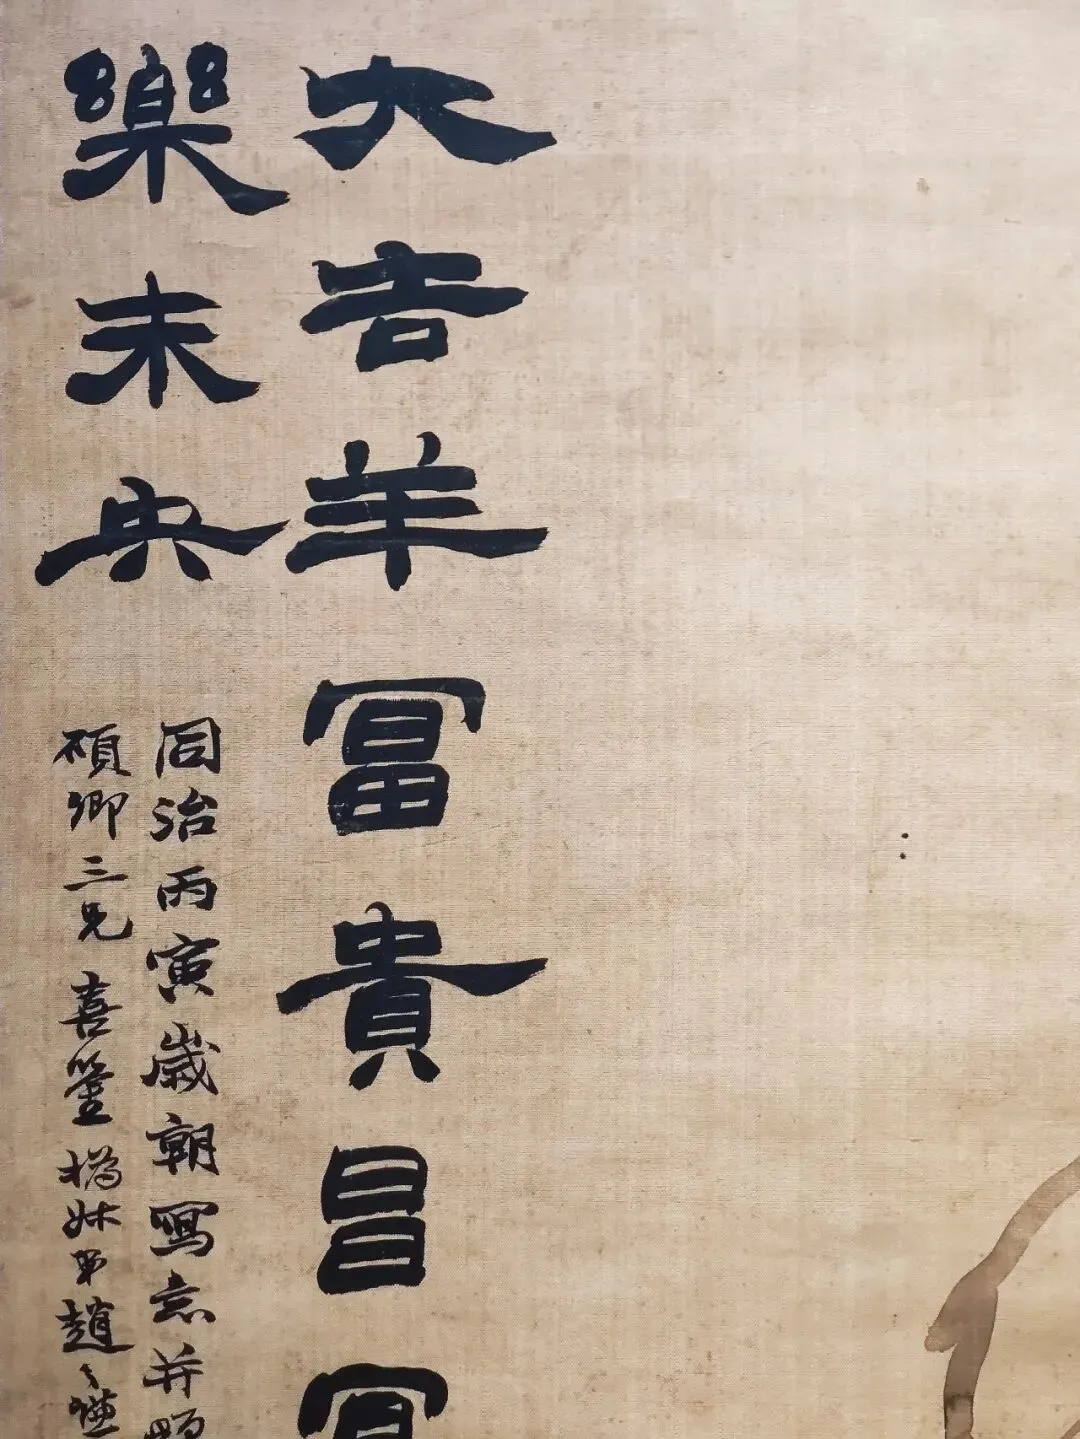 大吉羊冨貴昌
樂未央
同治丙寅歲朝寫意并
碩卿三兄喜撝叔弟趙之謙